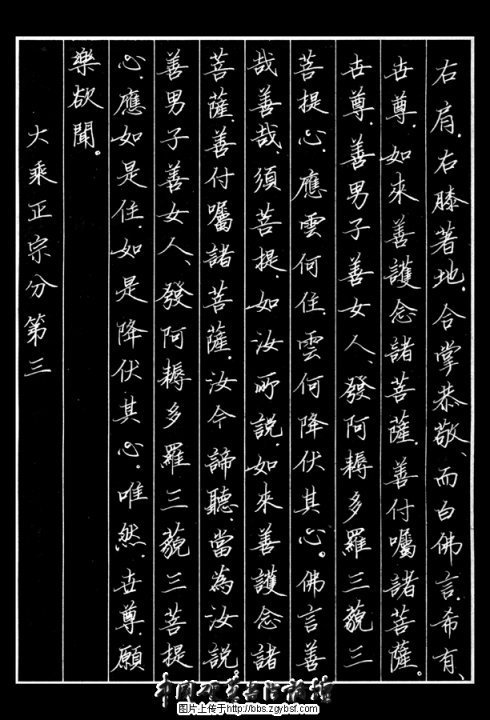 右肩.右膝著地.合掌恭敬、而白佛言.希有、
世尊.如來善護念諸菩薩.善付囑諸菩薩。
世尊.善男子善女人、發阿耨多羅三藐三
菩提心.應雲何住.雲何降伏其心。佛言善
哉善哉須菩提.如汝所說.如來善護念諸
菩薩.善付囑諸菩薩.汝今諦聽.當為汝說
善男子善女人、發阿耨多羅三藐三菩提
心.應如是住.如是降伏其心.唯然.世尊.願
樂欲聞。
大乘正宗分第三
中国硬笔书法论坛
图片上传于http://bbs.zgybsf.com